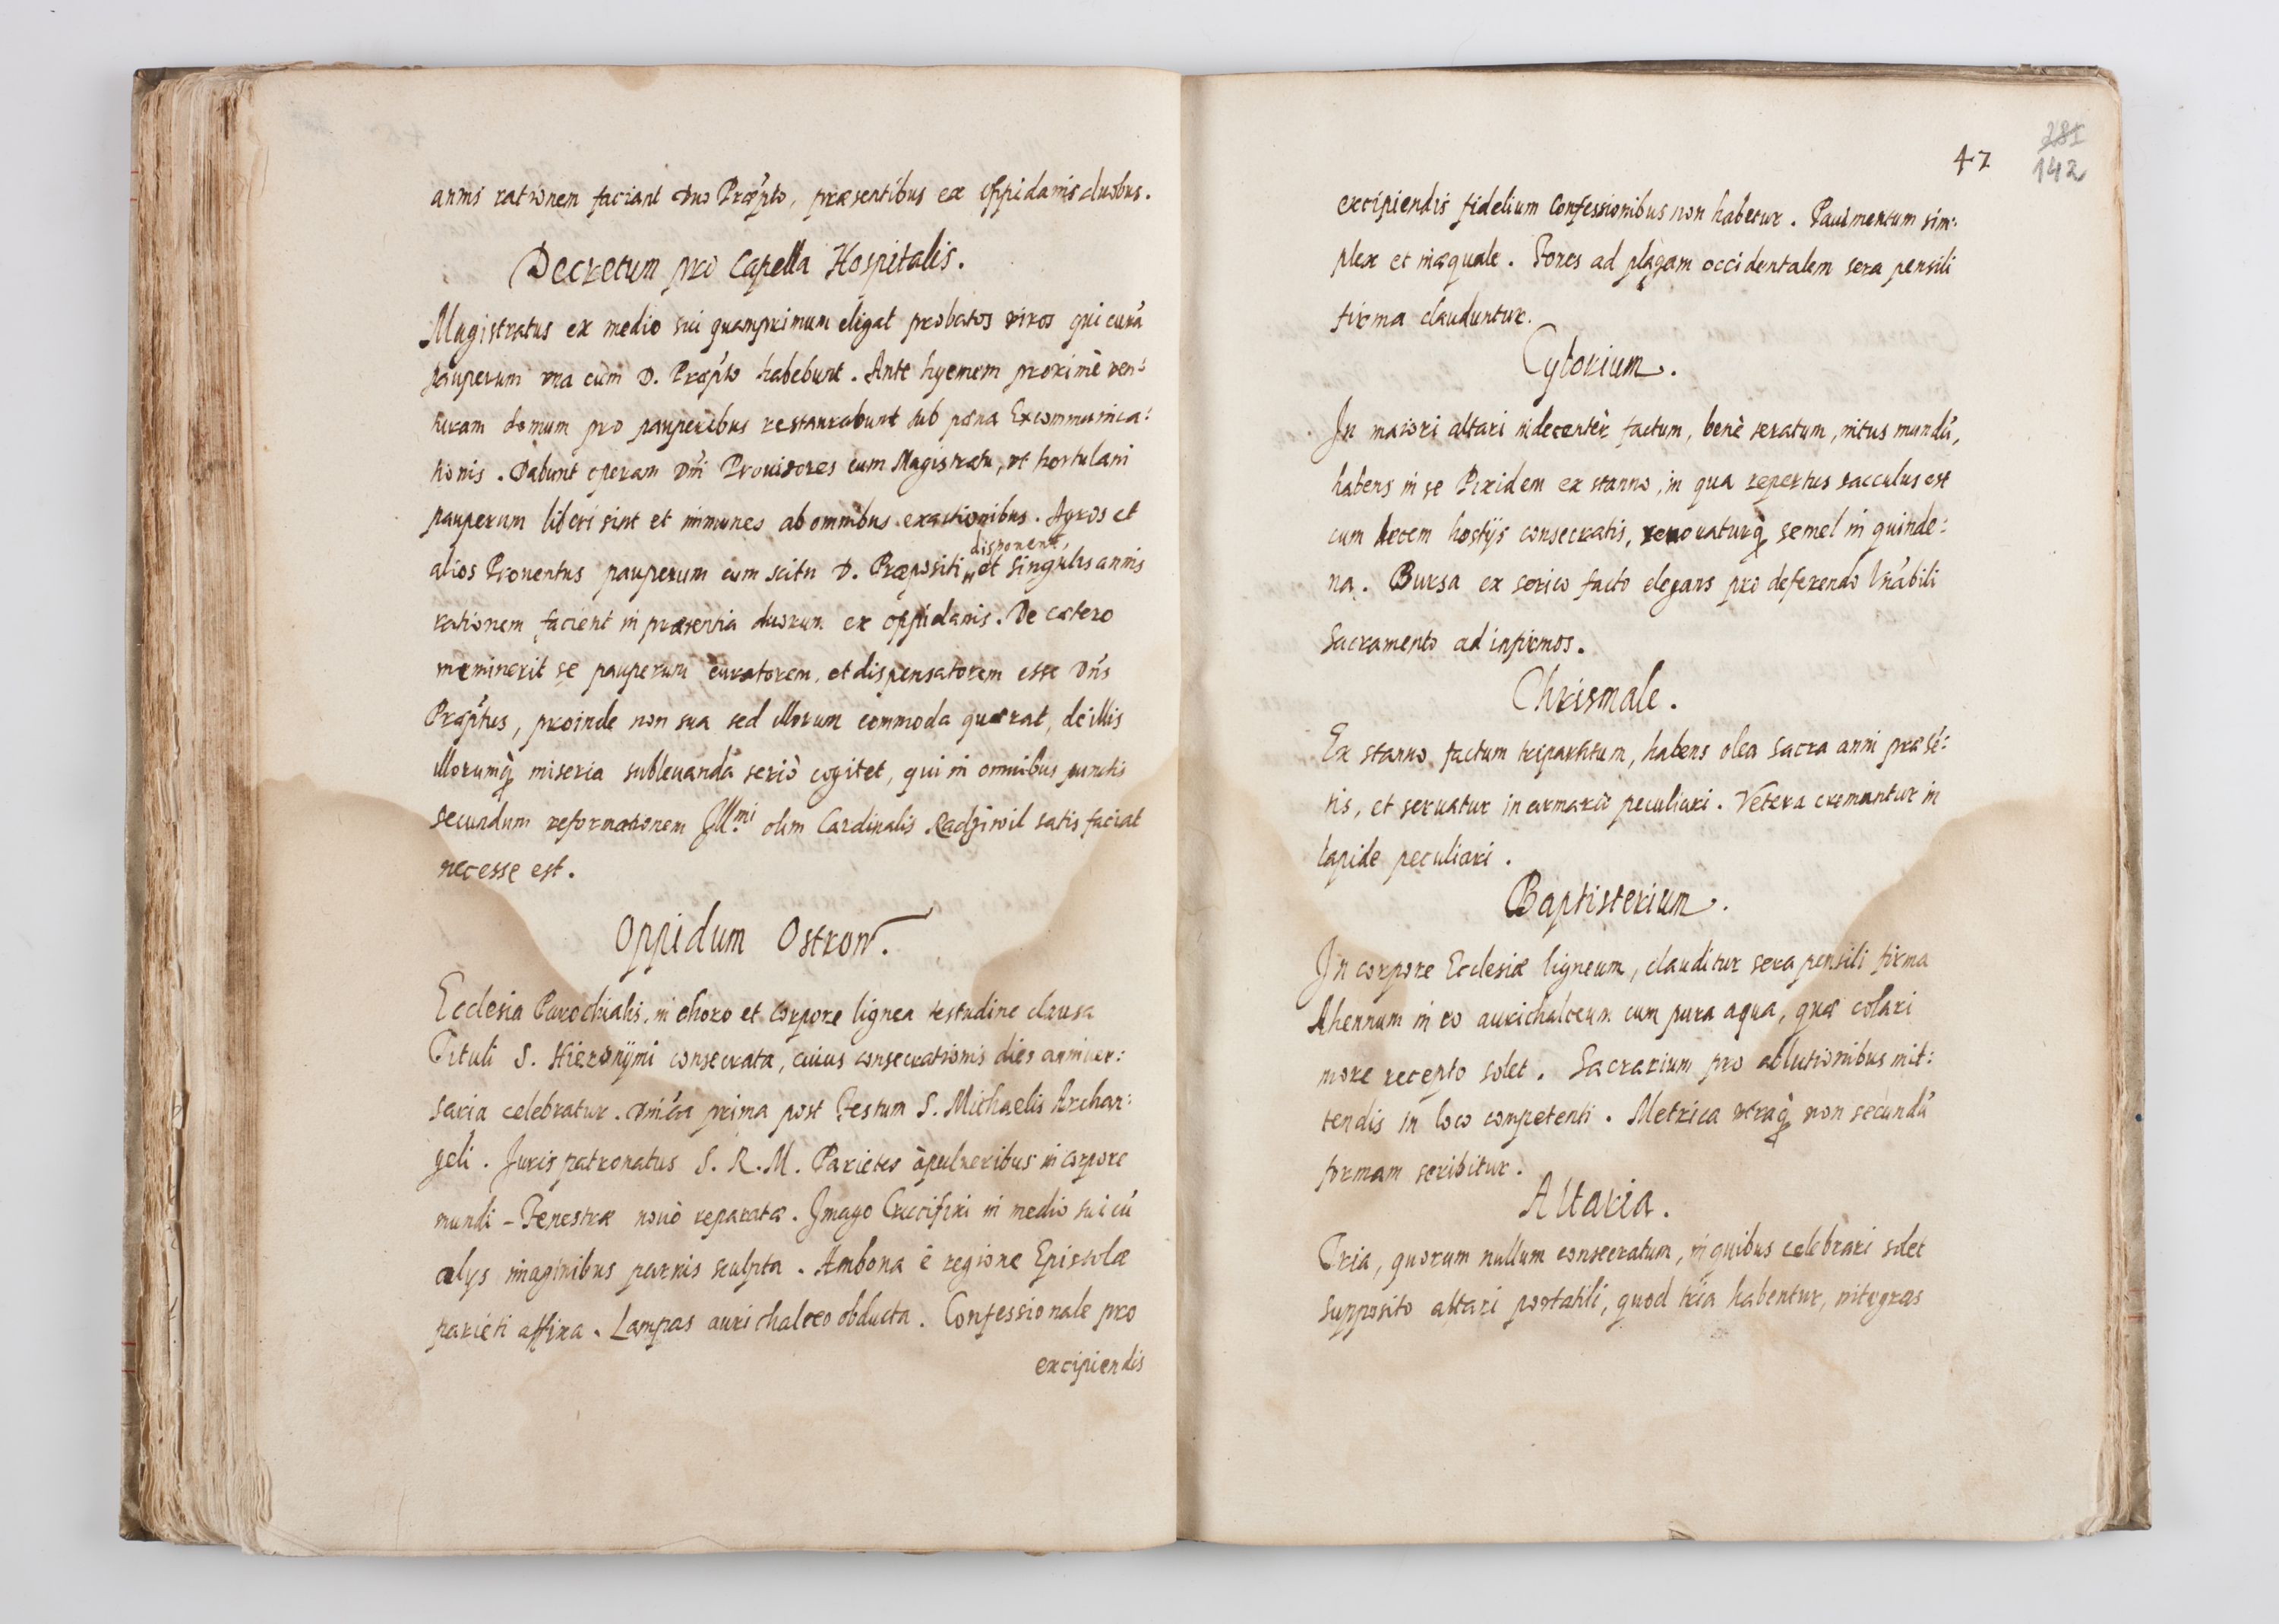 annis rationem faciant Dno Præp̃to, præsentibus ex Oppidanis duobus.
Decretum pro Capella Hospitalis.
Magistratus ex medio sui quamprimum eligat probatos viros qui curã
pauperum vna cum D. Præp̃to habebunt. Ante hyemem proximè ven:
turam domum pro pauperibus restaurabunt sub pæna Excommunica:
tionis. Dabunt operam Dñi Prouisores cum Magistratu, vt hortulani
pauperum liberi sint et immunes ab omnibus exactionibus. Agros et
disponent,
alios Prouentus pauperum cum scitu D. Præpositi et singulis annis
rationem facient in præsentia duorum ex oppidanis. De cætero
meminerit se pauperum curatorem, et dispensatorem esse Dñs
Præp̃tus, proinde non sua sed illorum commoda quærat, de illis
illorumq̃ miseria subleuandã seriò cogitet, qui in omnibus punctis
secundum reformationem Ill.mi olim Cardinalis Radziwil satis faciat
necesse est.
Oppidum Ostrow.
Ecclesia Parochialis, in choro et corpore lignea testudine clausa
Tituli S. Hieronymi consecrata, cuius consecrationis dies anniuer:
saria celebratur. Dñica prima post Festum S. Michaelis Archan:
geli. Juris patronatus S. R. M. Parietes à pulueribus in corpore
mundi - Fenestræ nouò reparatæ. Imago Crucifixi in medio sui cũ
alys imaginibus paruis sculpta. Ambona è regione Epistolæ
parieti affixa. Lampas aurichalceo obducta. Confessionale pro
excipiendis
47
281
142
excipiendis fidelium Confessionibus non habetur. Pauimentum sim:
plex et inæquale. Fores ad plagam occidentalem sera pensili
firma clauduntur.
Cyborium.
In maiori altari indecentèr factum, benè seratum, intus mundũ,
habens in se Pixidem ex stanno, in qua repertus sacculus est
cum decem hostijs consecratis, renouaturq̃ semel in quinde:
na. Bursa ex serico facto elegans pro deferendo Vñabili
Sacramento ad infirmos.
Chrismale.
Ex stanno factum tripartitum, habens olea sacra anni præsẽ:
tis, et seruatur in armario peculiari. Vetera cremantur in
lapide peculiari.
Baptisterium.
In corpore Ecclesiæ ligneum, clauditur sera pensili firma
Ahennum in eo aurichalceum cum pura aqua, quæ colari
more recepto solet. Sacrarium pro ablutionibus mit:
tendis in loco competenti. Metrica vtraq̃ non secundũ
formam scribitur.
Altaria.
Tria, quorum nullum consecratum, in quibus celebrari solet
supposito altari portatili, quod tria habentur, integras